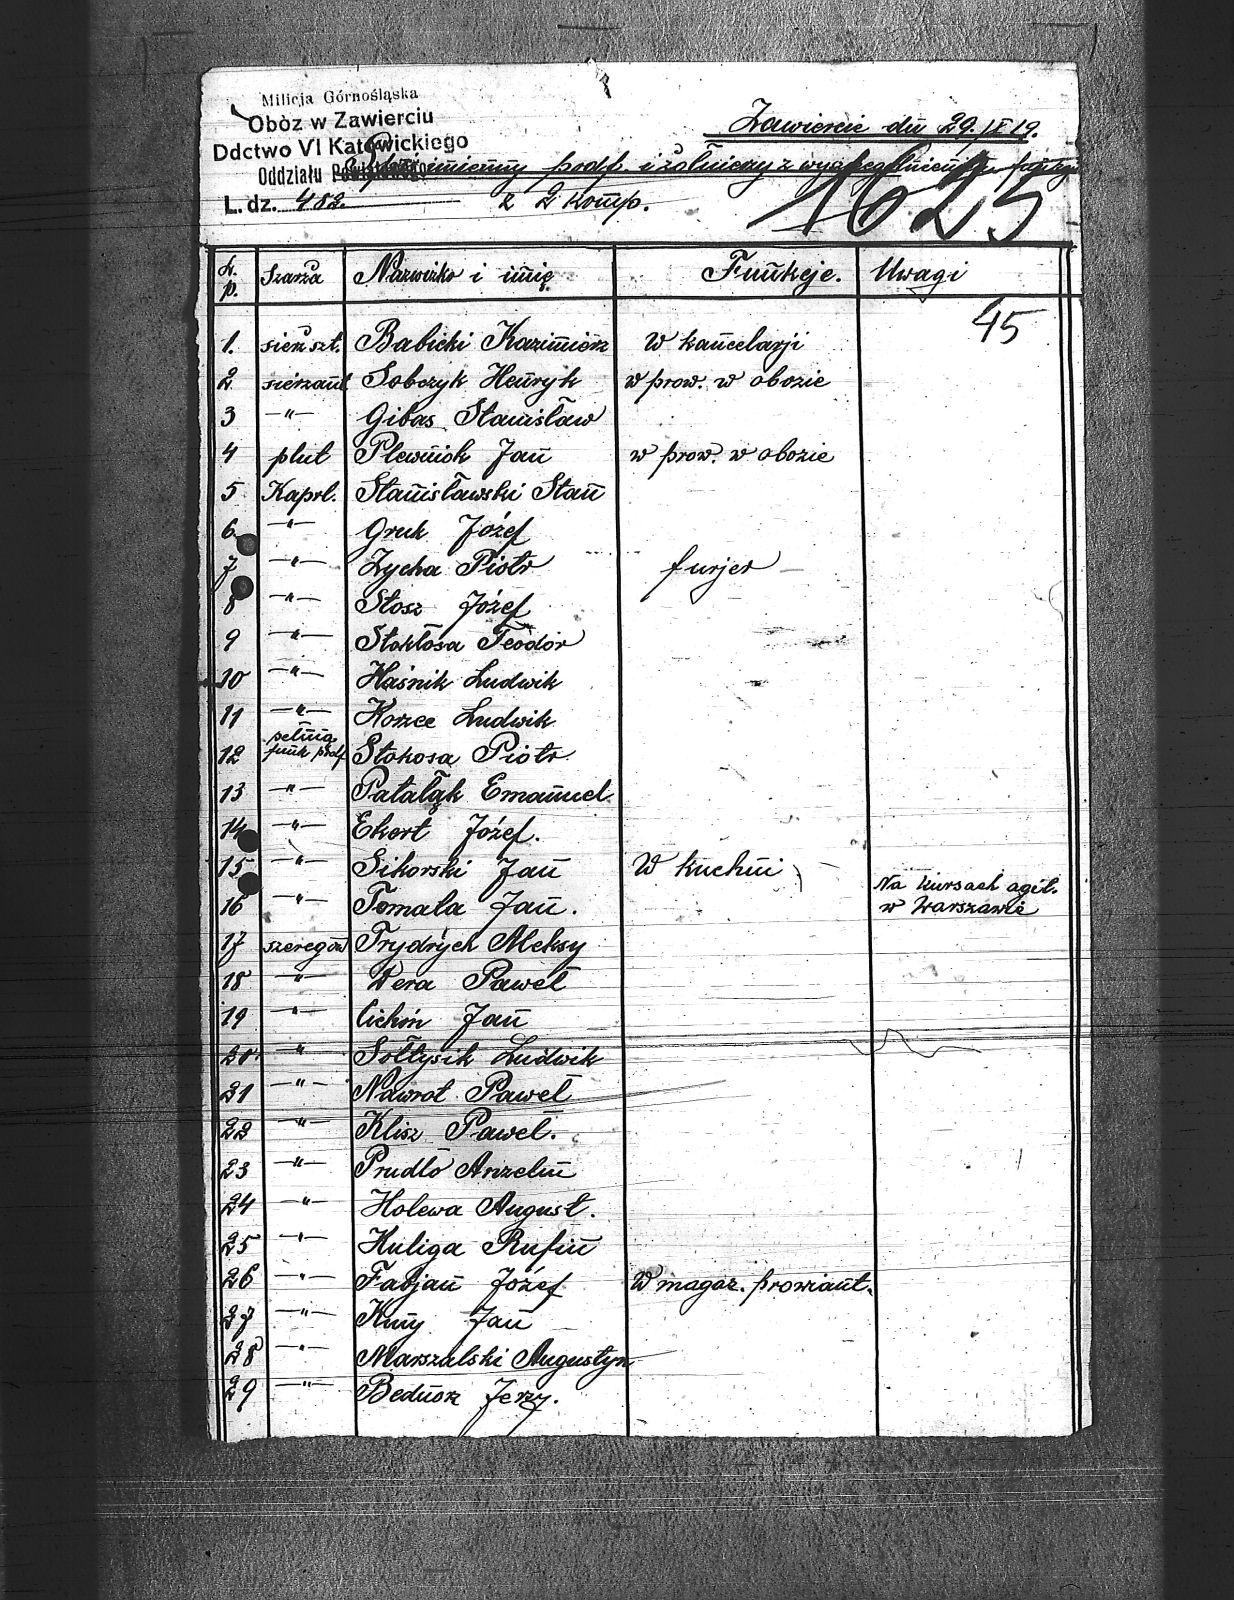 Milicja Górnośląska
Obòz w Zawierciu
Ddctwo VI Katowickiego
Oddziału
L. dz. 482.
Zawiercie dn 29./X 19.
imienny podof. i żołnierzy z wyszczególnieniem funkcji
z 2 Komp.
1625
L. p. Szarża Nazwisko i imię Funkcje. Uwagi
45
1. sierż szt. Babicki Kazimierz W kancelarji
2 sierżant Sobczyk Henryk w prow. w obozie
3 —"— Gibas Stanisław
4 plut Plewniok Jan w prow. w obozie
5 Kaprl. Stanisławski Stan
6 —"— Gruk Józef
7 —"— Zycha Piotr furjer
8 —"— Stosz Józef
9 —"— Stokłosa Teodor
10 —"— Haśnik Ludwik
11 —"— Korzec Ludwik
12 pełnią funk podf Stokosa Piotr
13 —"— Pataląk Emanuel
14 —"— Ekert Józef.
15 —"— Sikorski Jan W kuchni
16 —"— Tomala Jan. Na kursach agit. w Warszawie
17 szeregow Frydrych Aleksy
18 —"— Dera Paweł
19 —"— Cichoń Jan
20 —"— Sołtysik Ludwik
21 —"— Nawrot Paweł
22 —"— Klisz Paweł.
23 —"— Prudło Anzelm
24 —"— Holewa August.
25 —"— Kuliga Rufin
26 —"— Fabjan Józef W magaz. prowiant.
27 —"— Kuny Jan
28 —"— Marszalski Augustyn
29 —"— Bednorz Jerzy.